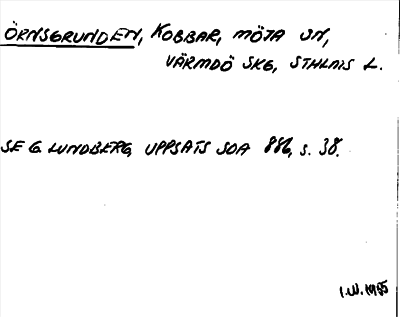 ÖRNSGRUNDEN, KOBBAR, MÖJA SN,
VÄRMDÖ SKG, STHLMS L.
SE G LUNDBERG, UPPSATS SOA 886, S. 38.